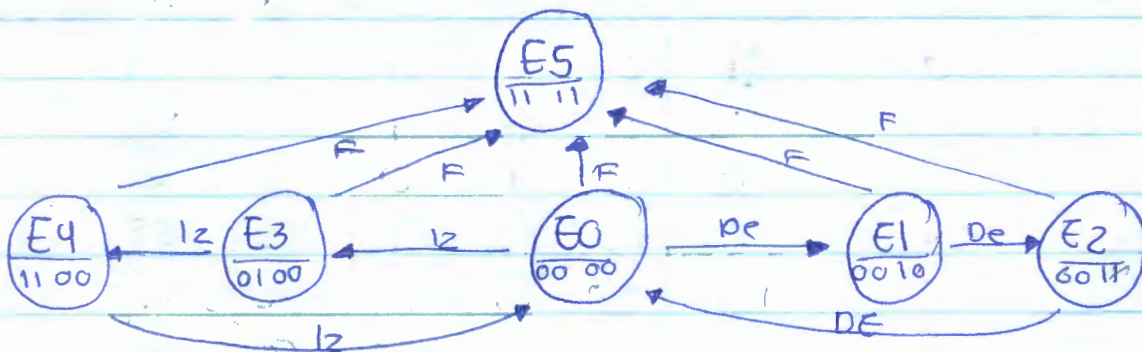 E5
11 11
F
F
F
F
F
E4
11 00
Iz
E3
01 00
Iz
E0
00 00
De
E1
00 10
De
E2
Iz
DE